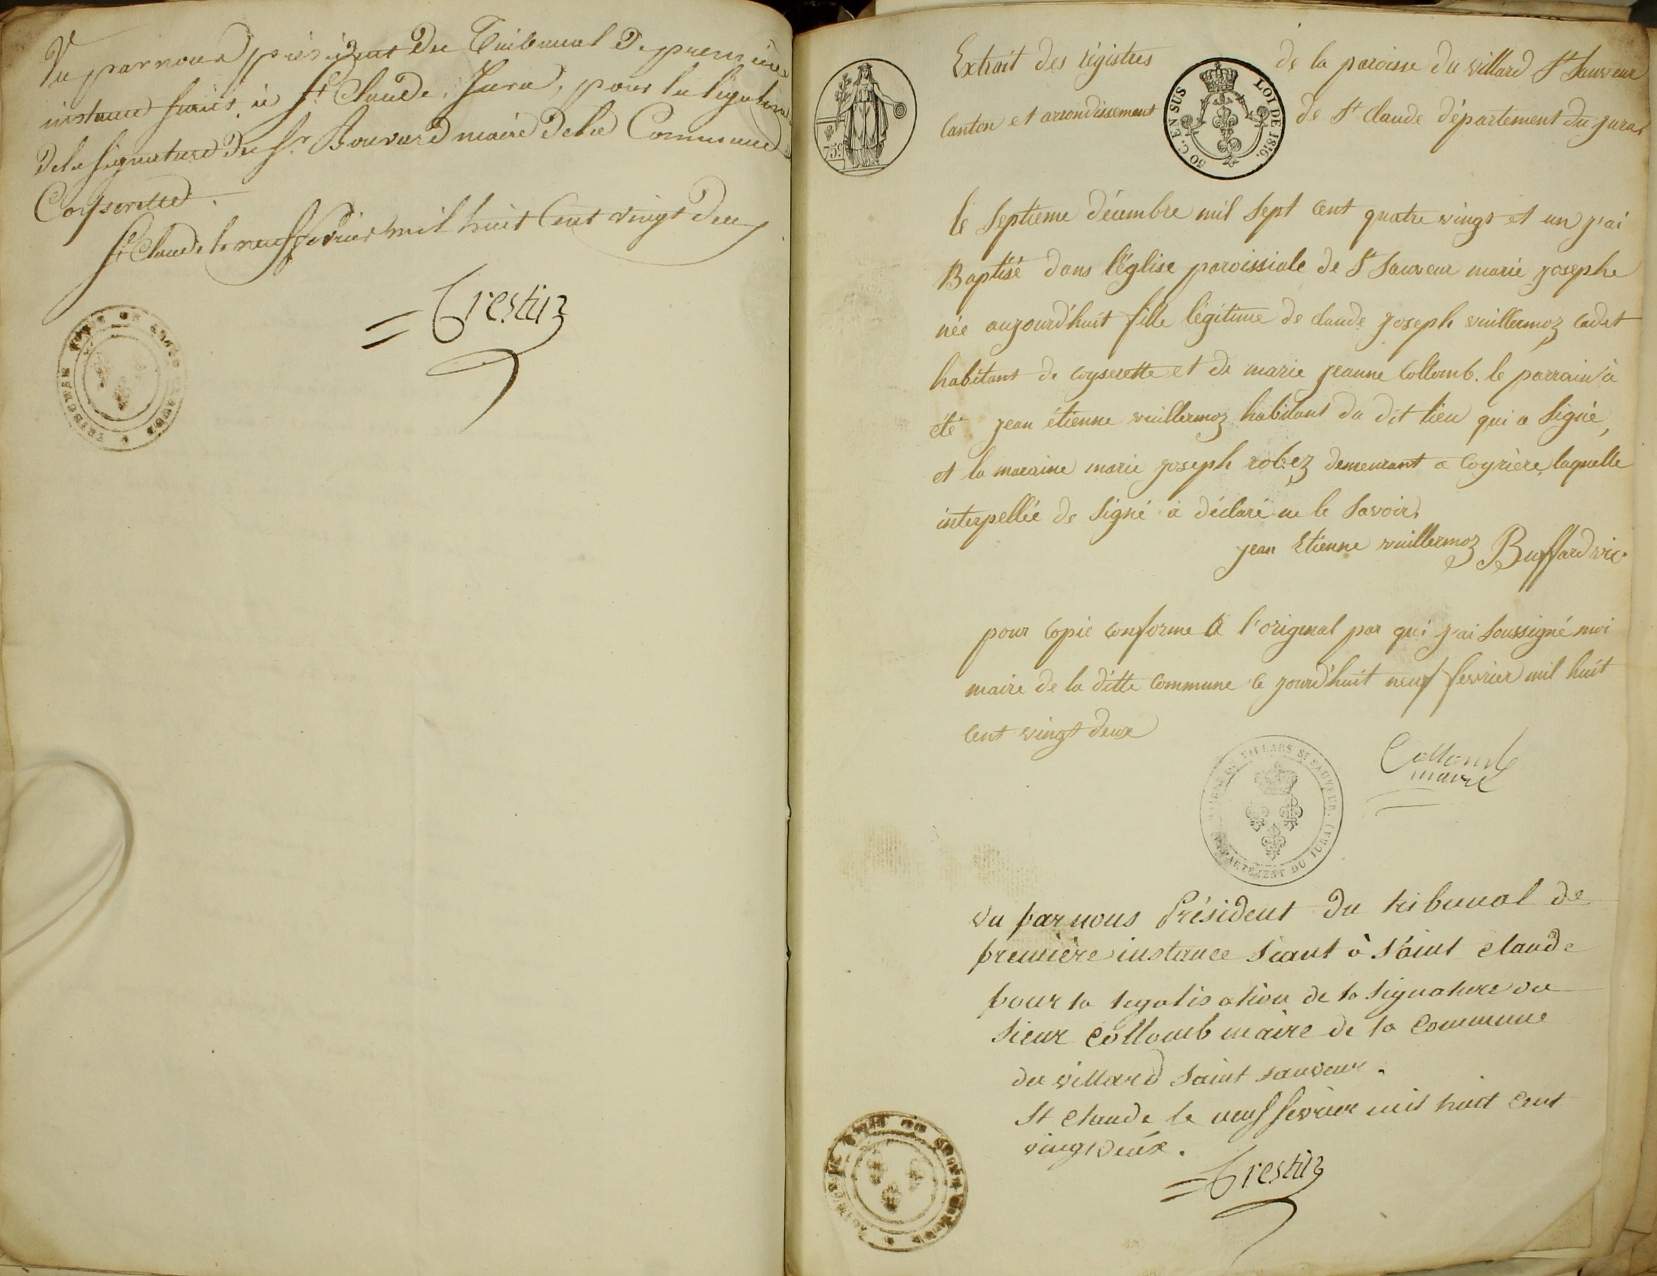 Vu par nous président du Tribunal De première
instance séant à St Claude, Jura, pour la légalisation
de la signature du Sr. Bouvard maire de la Commune
Coyserette.
St Claude le neuf février mil huit Cent vingt deux
= Crestin
TRIBUNAL
Extrait des régistres de la paroisse du villard St Sauveur
Canton et arrondissement de St Claude département du jura
759
50 C. EN SUS
LOI DE 1816.
le septieme décembre mil sept cent quatre vingt et un j'ai
Baptisé dans l'église paroissiale de St Sauveur marie josephe
née aujourd'huit fille légitime de claude joseph vuillermoz cadet
habitant de coyserette et de marie jeanne Collomb. le parrain à
été jean étienne vuillermoz habitant du dit lieu qui a signé,
et la maraine marie joseph robez demeurant a Coyrière, laquelle
interpellée de signé à déclaré ne le savoir,
jean Etienne vuillermoz Buffard vic.
pour copie conforme à l'original par qui j'ai soussigné moi
maire de la ditte commune ce jourd'huit neuf fevrier mil huit
cent vingt deux
Collomb
maire
VILLARS ST SAUVEUR. (JURA)
DEPARTEMENT DU JURA
vu par nous Président du tribunal de
première instance séant à Saint Claude
pour la légalisation de la signature du
sieur Collomb maire de la commune
du villard saint sauveur.
St Claude le neuf fevrier mil huit cent
vingt deux.
= Crestin